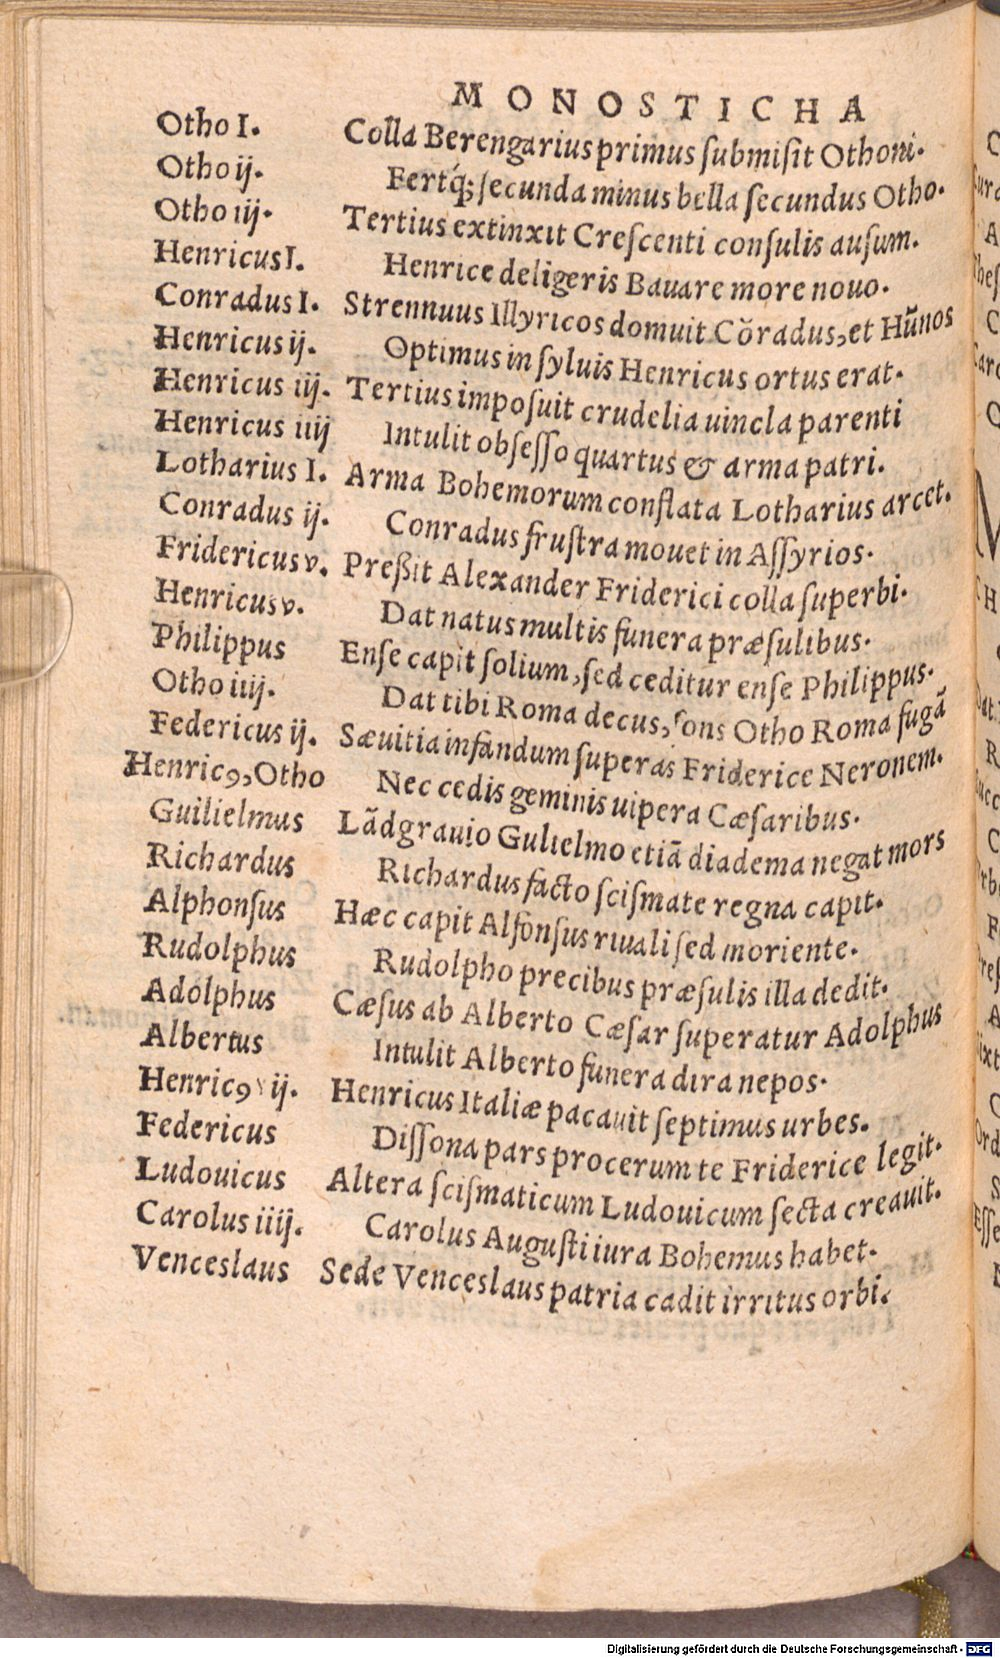 MONOSTICHA
Otho I. Colla Berengarius primus ſubmiſit Othoni.
Otho ij. Fertq́; ſecunda minus bella ſecundus Otho.
Otho iij. Tertius extinxit Creſcenti conſulis auſum.
Henricus I. Henrice deligeris Bavare more nouo.
Conradus I. Strennuus Illyricos domuit Cõradus, et Hũnos
Henricus ij. Optimus in ſyluis Henricus ortus erat.
Henricus iij. Tertius impoſuit crudelia uincla parenti
Henricus iiij Intulit obſeſſo quartus & arma patri.
Lotharius I. Arma Bohemorum conflata Lotharius arcet.
Conradus ij. Conradus fruſtra mouet in Aſſyrios.
Fridericus v. Preßit Alexander Friderici colla ſuperbi.
Henricus v. Dat natus multis funera præſulibus.
Philippus Enſe capit ſolium, ſed ceditur enſe Philippus.
Otho iiij. Dat tibi Roma decus, ſons Otho Roma fugã
Federicus ij. Sæuitia infandum ſuperas Friderice Neronem.
Henricꝰ, Otho Nec cedis geminis uipera Cæſaribus.
Guilielmus Lãdgrauio Gulielmo etiã diadema negat mors
Richardus Richardus facto ſciſmate regna capit.
Alphonſus Hæc capit Alfonſus riuali ſed moriente.
Rudolphus Rudolpho precibus præſulis illa dedit.
Adolphus Cæſus ab Alberto Cæſar ſuperatur Adolphus
Albertus Intulit Alberto funera dira nepos.
Henricꝰ vij. Henricus Italiæ pacauit ſeptimus urbes.
Federicus Diſſona pars procerum te Friderice legit.
Ludouicus Altera ſciſmaticum Ludouicum ſecta creauit.
Carolus iiij. Carolus Auguſti iura Bohemus habet.
Venceslaus Sede Venceslaus patria cadit irritus orbi.
Digitalisierung gefördert durch die Deutsche Forschungsgemeinschaft - DFG